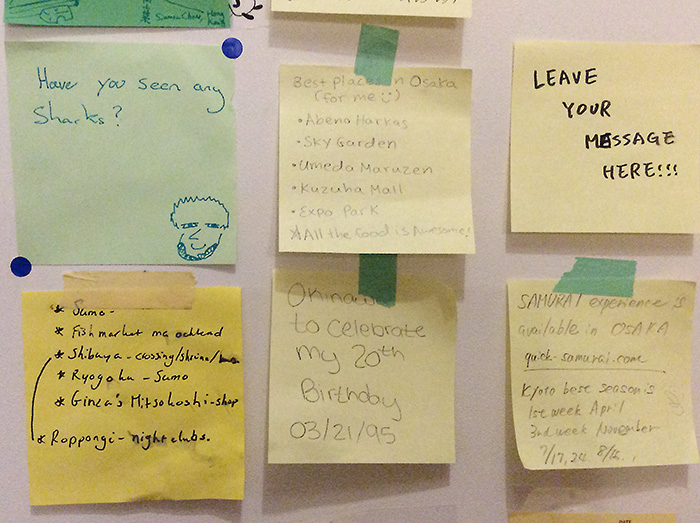 Samu Chow, Hong
Kong
Have you seen any
Sharks?
Best places in Osaka
(for me ツ)
• Abeno Harkas
• Sky Garden
• Umeda Maruzen
• Kuzuha Mall
• Expo Park
* All the food is Awesome!
LEAVE
YOUR
MESSAGE
HERE!!!
* Sumo -
* Fish market ma ochtend
* Shibuya - crossing/shrine/
* Ryogoku - Sumo
* Ginza's Mitsokoshi-shop
* Roppongi - nightclubs.
Okinawa
to celebrate
my 20th
Birthday
03/21/95
SAMURAI experience is
available in OSAKA
quick-samurai.com
Kyoto best season is
1st week April
3rd week November
7/17,24. 8/16.